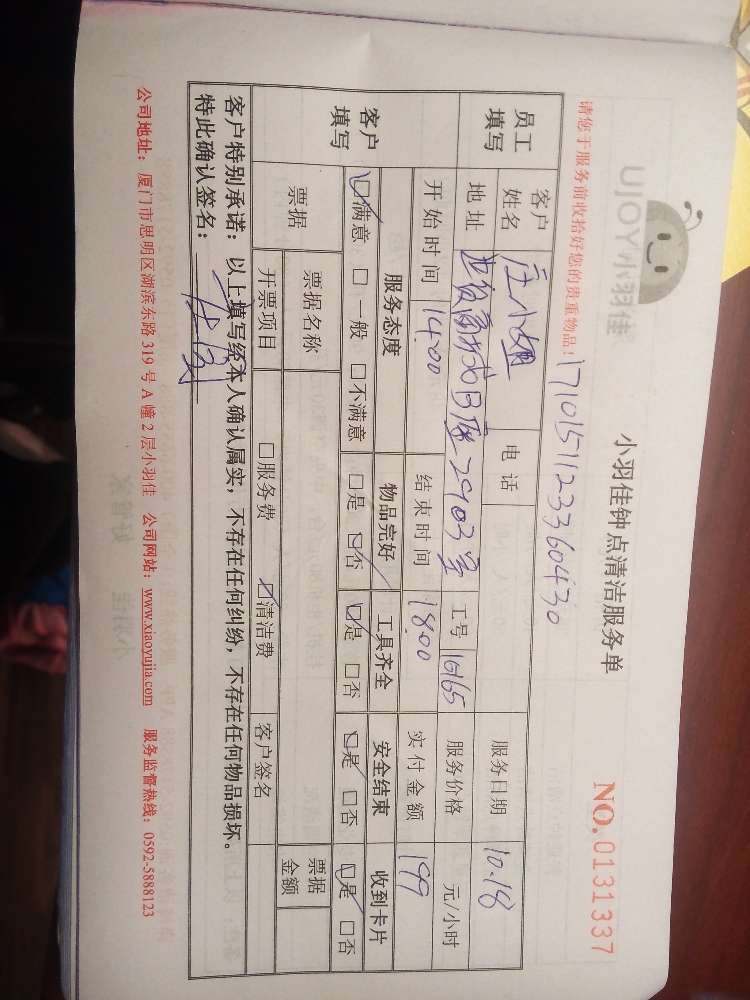 UJOY小羽佳
小羽佳钟点清洁服务单
NO.0131337
请您于服务前收拾好您的贵重物品！
17101511233360430
员工填写 客户姓名 庄小姐 电话 服务日期 10.18
地址 2903室 工号 16165 服务价格 元/小时
开始时间 14:00 结束时间 18:00 实付金额 199
客户填写 服务态度 物品完好 工具齐全 安全结束 收到卡片
☑满意 □一般 □不满意 □是 ☑否 ☑是 □否 ☑是 □否 ☑是 □否
票据 票据名称 票据金额
开票项目 □服务费 ☑清洁费 客户签名
客户特别承诺：以上填写经本人确认属实，不存在任何纠纷，不存在任何物品损坏。
特此确认签名：
公司地址：厦门市思明区湖滨东路 319 号 A 幢 2 层小羽佳 公司网站：www.xiaoyujia.com 服务监督热线：0592-5888123